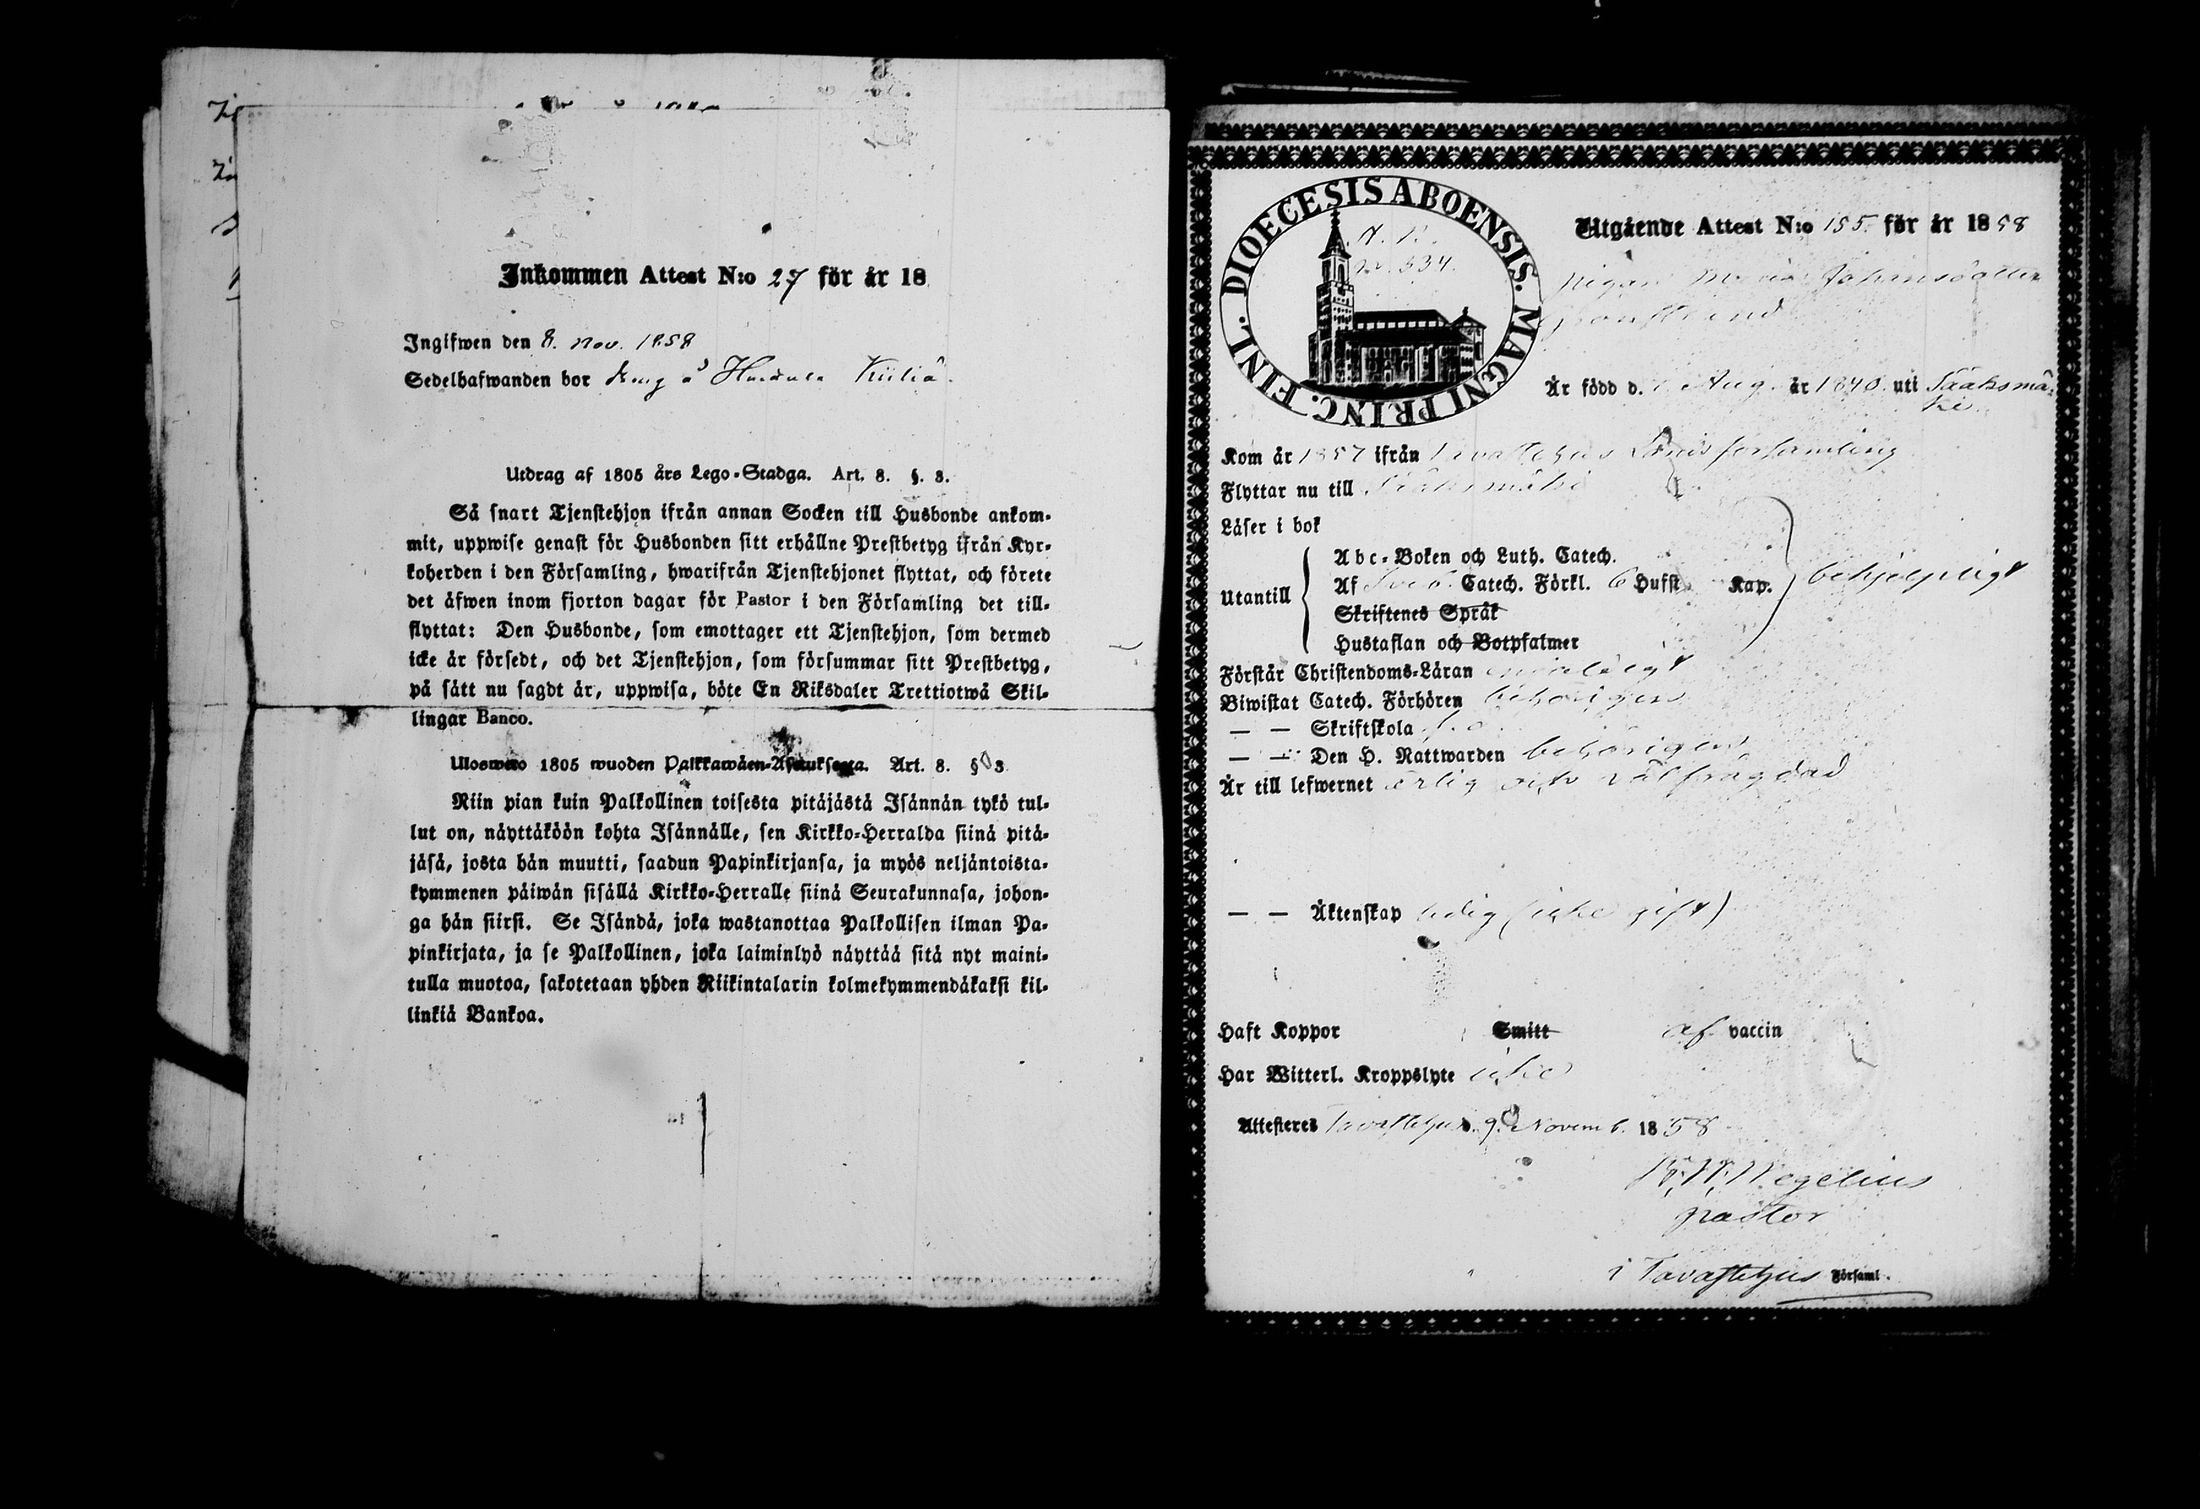 Inkommen Attest N:o 27 för år 18
Ingifwen den 8. nov. 1858
Sedelhafwanden bor
Utdrag af 1805 års Lego-Stadga. Art. 8. §. 3.
Så snart Tjenstehjon ifrån annan Socken till Husbonde ankom-
mit, uppwise genast för Husbonden sitt erhållne Prestbetyg ifrån Kyr-
koherden i den Församling, hwarifrån Tjenstehjonet flyttat, och förete
det äfwen inom fjorton dagar för Pastor i den Församling det till-
flyttat: Den Husbonde, som emottager ett Tjenstehjon, som dermed
icke är försedt, och det Tjenstehjon, som försummar sitt Prestbetyg,
på sätt nu sagdt är, uppwisa, böte En Riksdaler Trettiotwå Skil-
lingar Banco.
Uloswето 1805 wuoden Palkkawäen-Asetuksesta. Art. 8. § 3
Niin pian kuin Palkollinen toisesta pitäjästä Isännän tykö tul-
lut on, näyttäköön kohta Isännälle, sen Kirkko-Herralda siinä pitä-
jäsä, josta hän muutti, saadun Papinkirjansa, ja myös neljäntoista-
kymmenen päiwän sisällä Kirkko-Herralle siinä Seurakunnasa, johon-
ga hän siirsi. Se Isändä, joka wastanottaa Palkollisen ilman Pa-
pinkirjata, ja se Palkollinen, joka laiminlyö näyttää sitä nyt maini-
tulla muotoa, sakotetaan yhden Riikintalarin kolmekymmendäkaksi kil-
linkiä Bankoa.
DIOECESIS ABOENSIS. MAGNI PRINC. FINL.
534.
Utgående Attest N:o 155. för år 1858
Pigan Maria Johansdotter
Är född d. Aug. år 1840. uti Sääksmä-
ki
Kom år 1857 ifrån Tavastehus församling
Flyttar nu till Sääksmäki
Läser i bok
Utantill
Abc-Boken och Luth. Catech.
Af Sveb. Catech. Förkl. 6 Hufst. Kap.
behjelpligt
Skriftenes Språk
Hustaflan och Botpsalmer
Förstår Christendoms-Läran
Biwistat Catech. Förhören behörigen
— — Skriftskola
— — Den H. Nattwarden behörigen
Är till lefwernet ärlig och välfrägdad
— — Äktenskap ledig (icke gift)
Haft Koppor Smitt af vaccin
Har Witterl. Kroppslyte icke
Attesteres Tavastehus. 9. Novemb. 1858
Wegelius
pastor
i Tavastehus Församl.